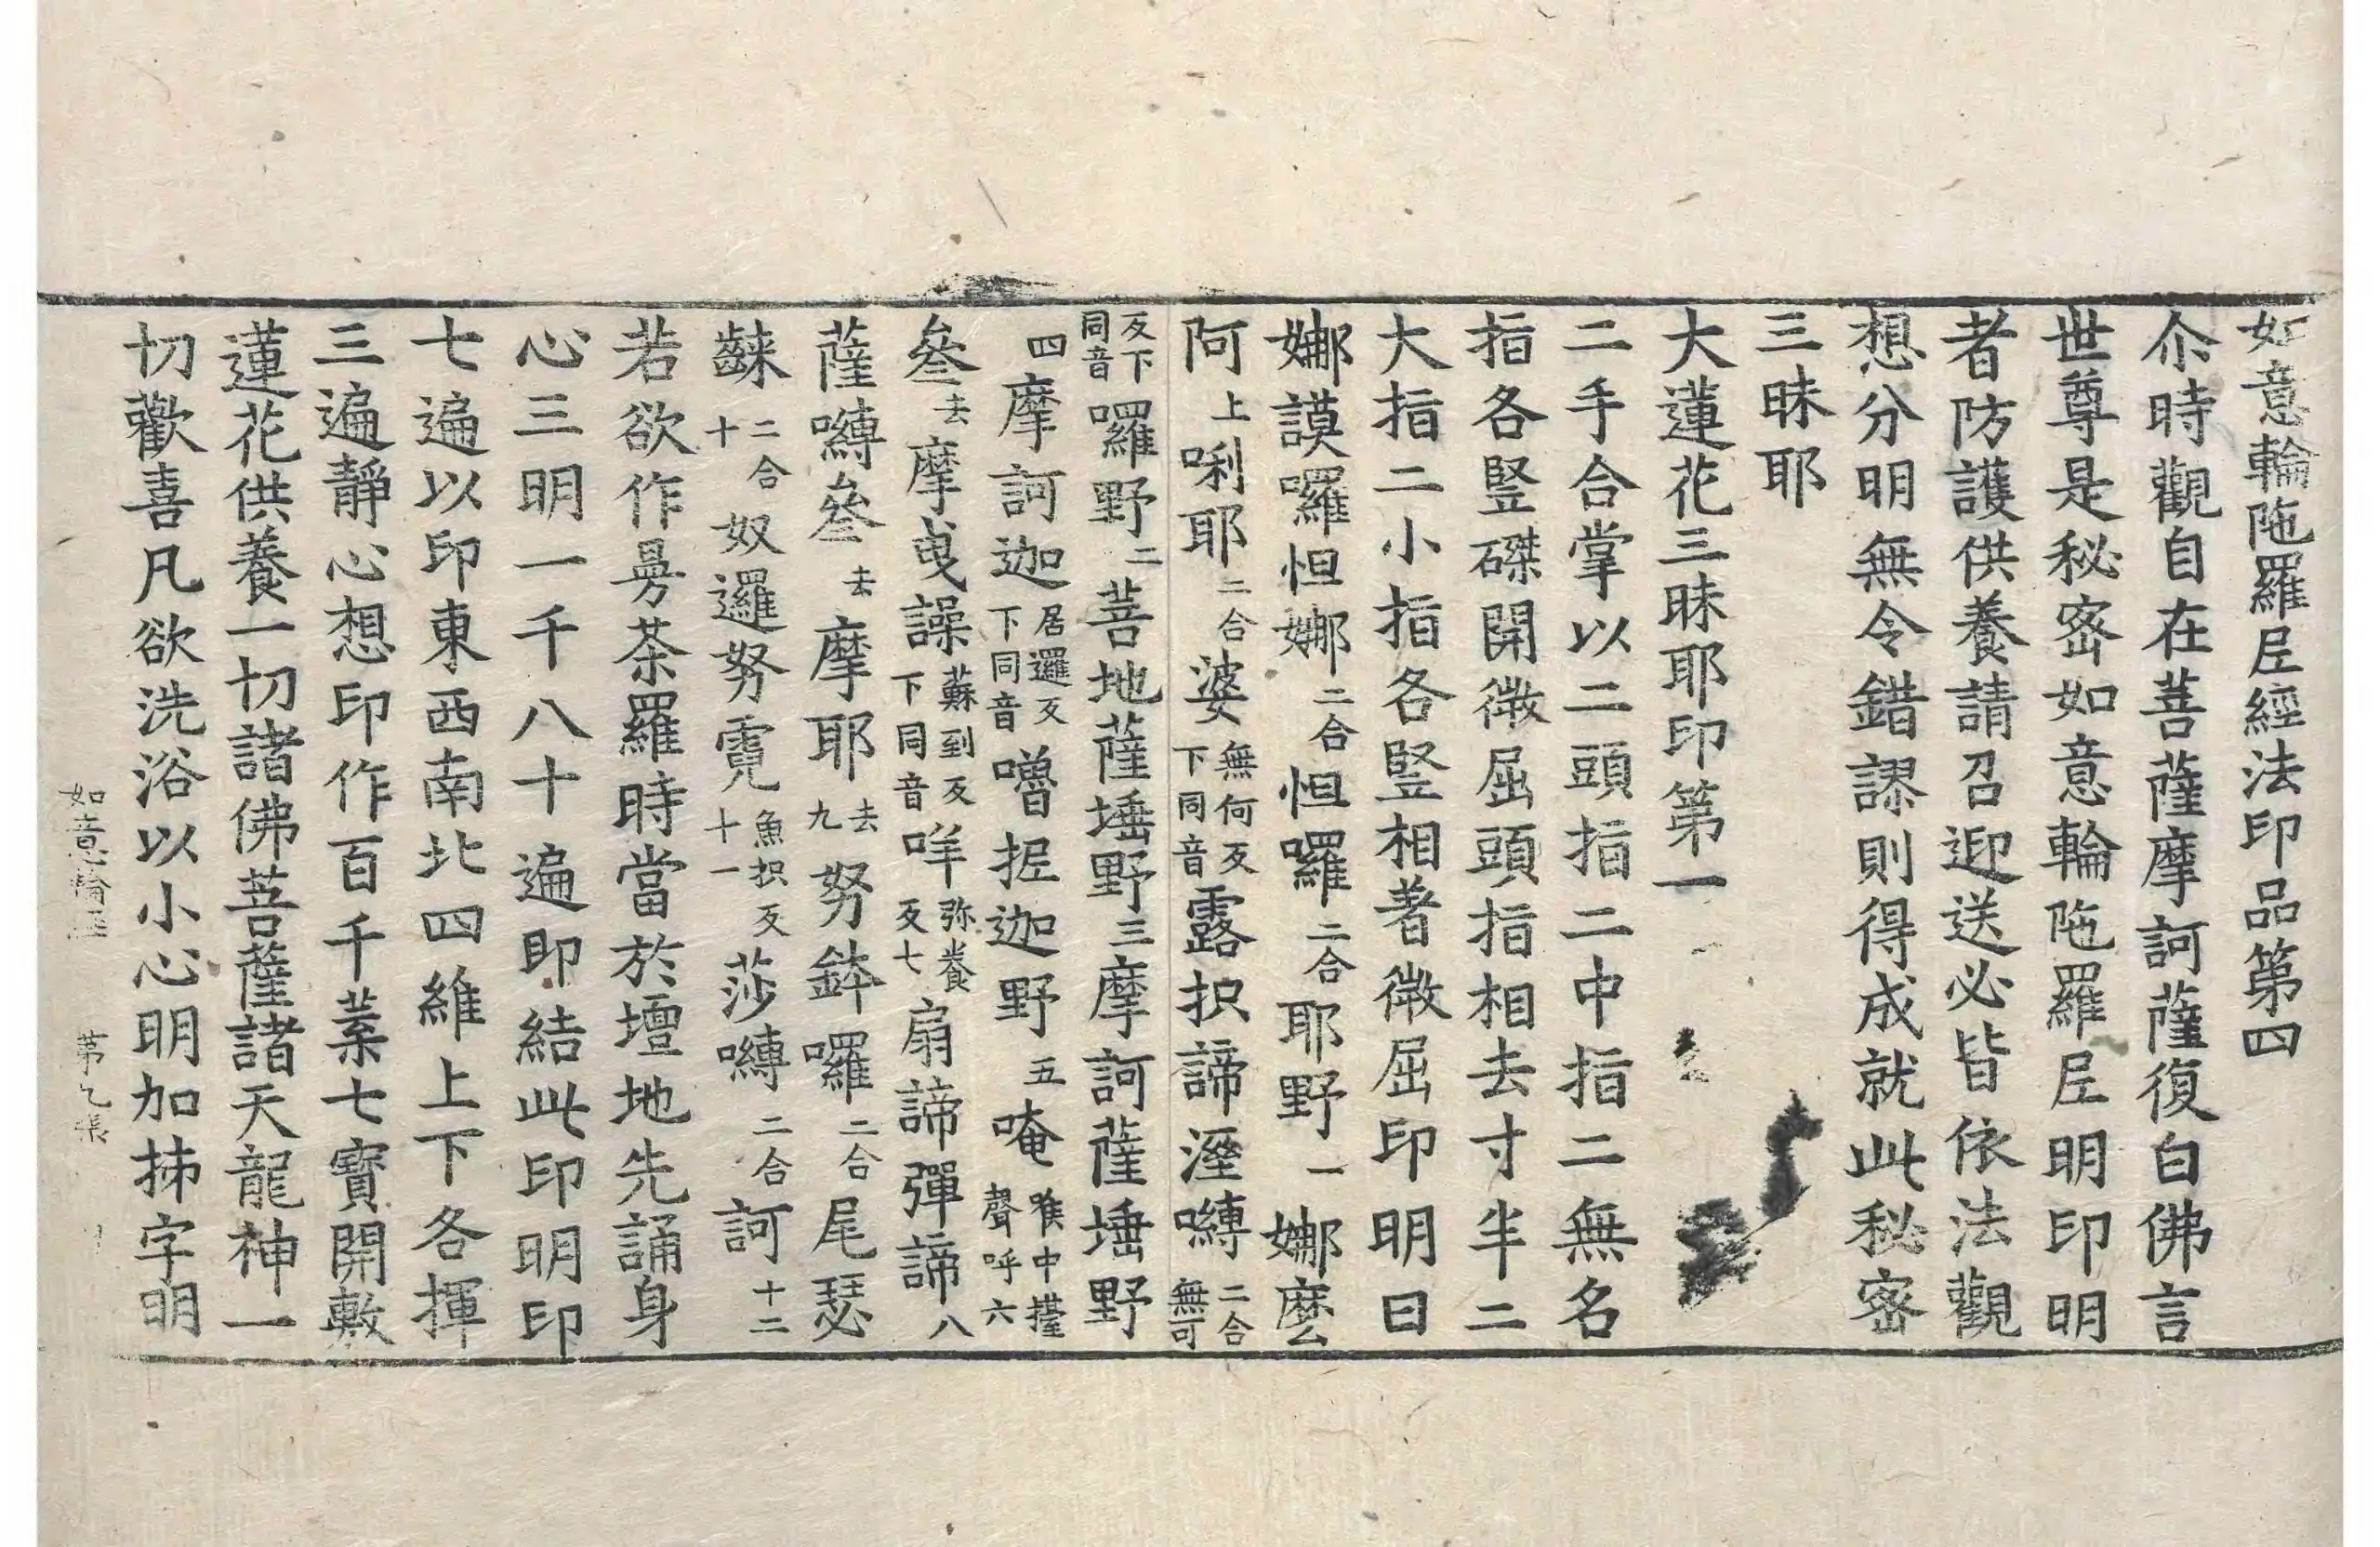 如意輪陁羅尼經法印品第四
尒時觀自在菩薩摩訶薩復白佛言
世尊是秘密如意輪陁羅尼明印明
者防護供養請召迎送必皆依法觀
想分明無令錯謬則得成就此秘密
三昧耶
大蓮花三昧耶印第一
二手合掌以二頭指二中指二無名
指各竪磔開微屈頭指相去寸半二
大指二小指各竪相著微屈印明曰
娜謨囉怛娜二合怛囉二合耶野一娜麽
阿上唎耶二合婆無何反下同音露抧諦溼嚩二合無可
反下同音囉野二菩地薩埵野三摩訶薩埵野
四摩訶迦居邏反下同音嚕抳迦野五唵喉中擡聲呼六
叄去摩曵譟蘇到反下同音咩弥養反七扇諦彈諦八
薩嚩叄去摩耶去九努鉢囉二合尾瑟
𪘨二合十奴邏努霓魚抧反十一莎嚩二合訶十二
若欲作曼荼羅時當於壇地先誦身
心三明一千八十遍即結此印明印
七遍以印東西南北四維上下各揮
三遍靜心想印作百千葉七寶開敷
蓮花供養一切諸佛菩薩諸天龍神一
切歡喜凡欲洗浴以小心明加持字明
如意輪經 第七張